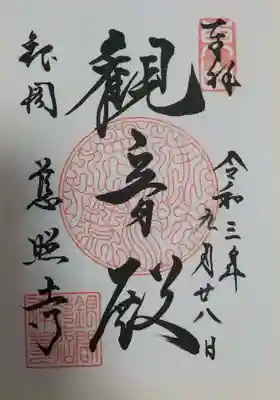 奉拝
令和三年九月廿八日
観音殿
銀閣
慈照寺